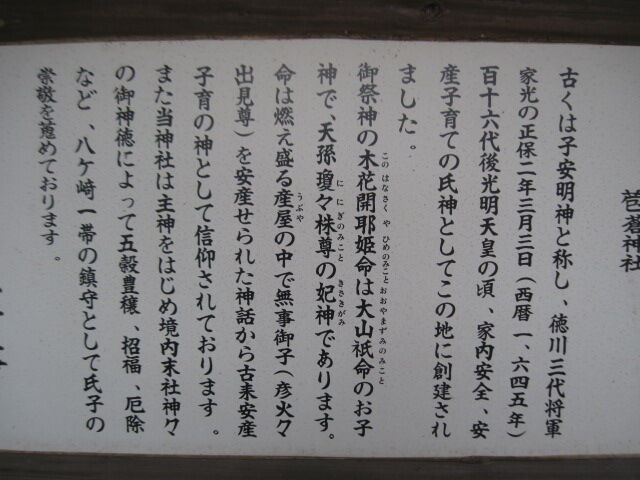 神社
古くは子安明神と称し、徳川三代将軍
家光の正保二年三月三日(西暦一、六四五年)
百十六代後光明天皇の頃、家内安全、安
産子育ての氏神としてこの地に創建され
ました。
御祭神の木花開耶姫命は大山祇命のお子
このはなさくやひめのみこと おおやまずみのみこと
神で、天孫瓊々株尊の妃神であります。
ににぎのみこと きさきがみ
命は燃え盛る産屋の中で無事御子(彦火々
うぶや
出見尊)を安産せられた神話から古来安産
子育の神として信仰されております。
また当神社は主神をはじめ境内末社神々
の御神徳によって五穀豊穣、招福、厄除
など、八ケ崎一帯の鎮守として氏子の
崇敬を蒐めております。